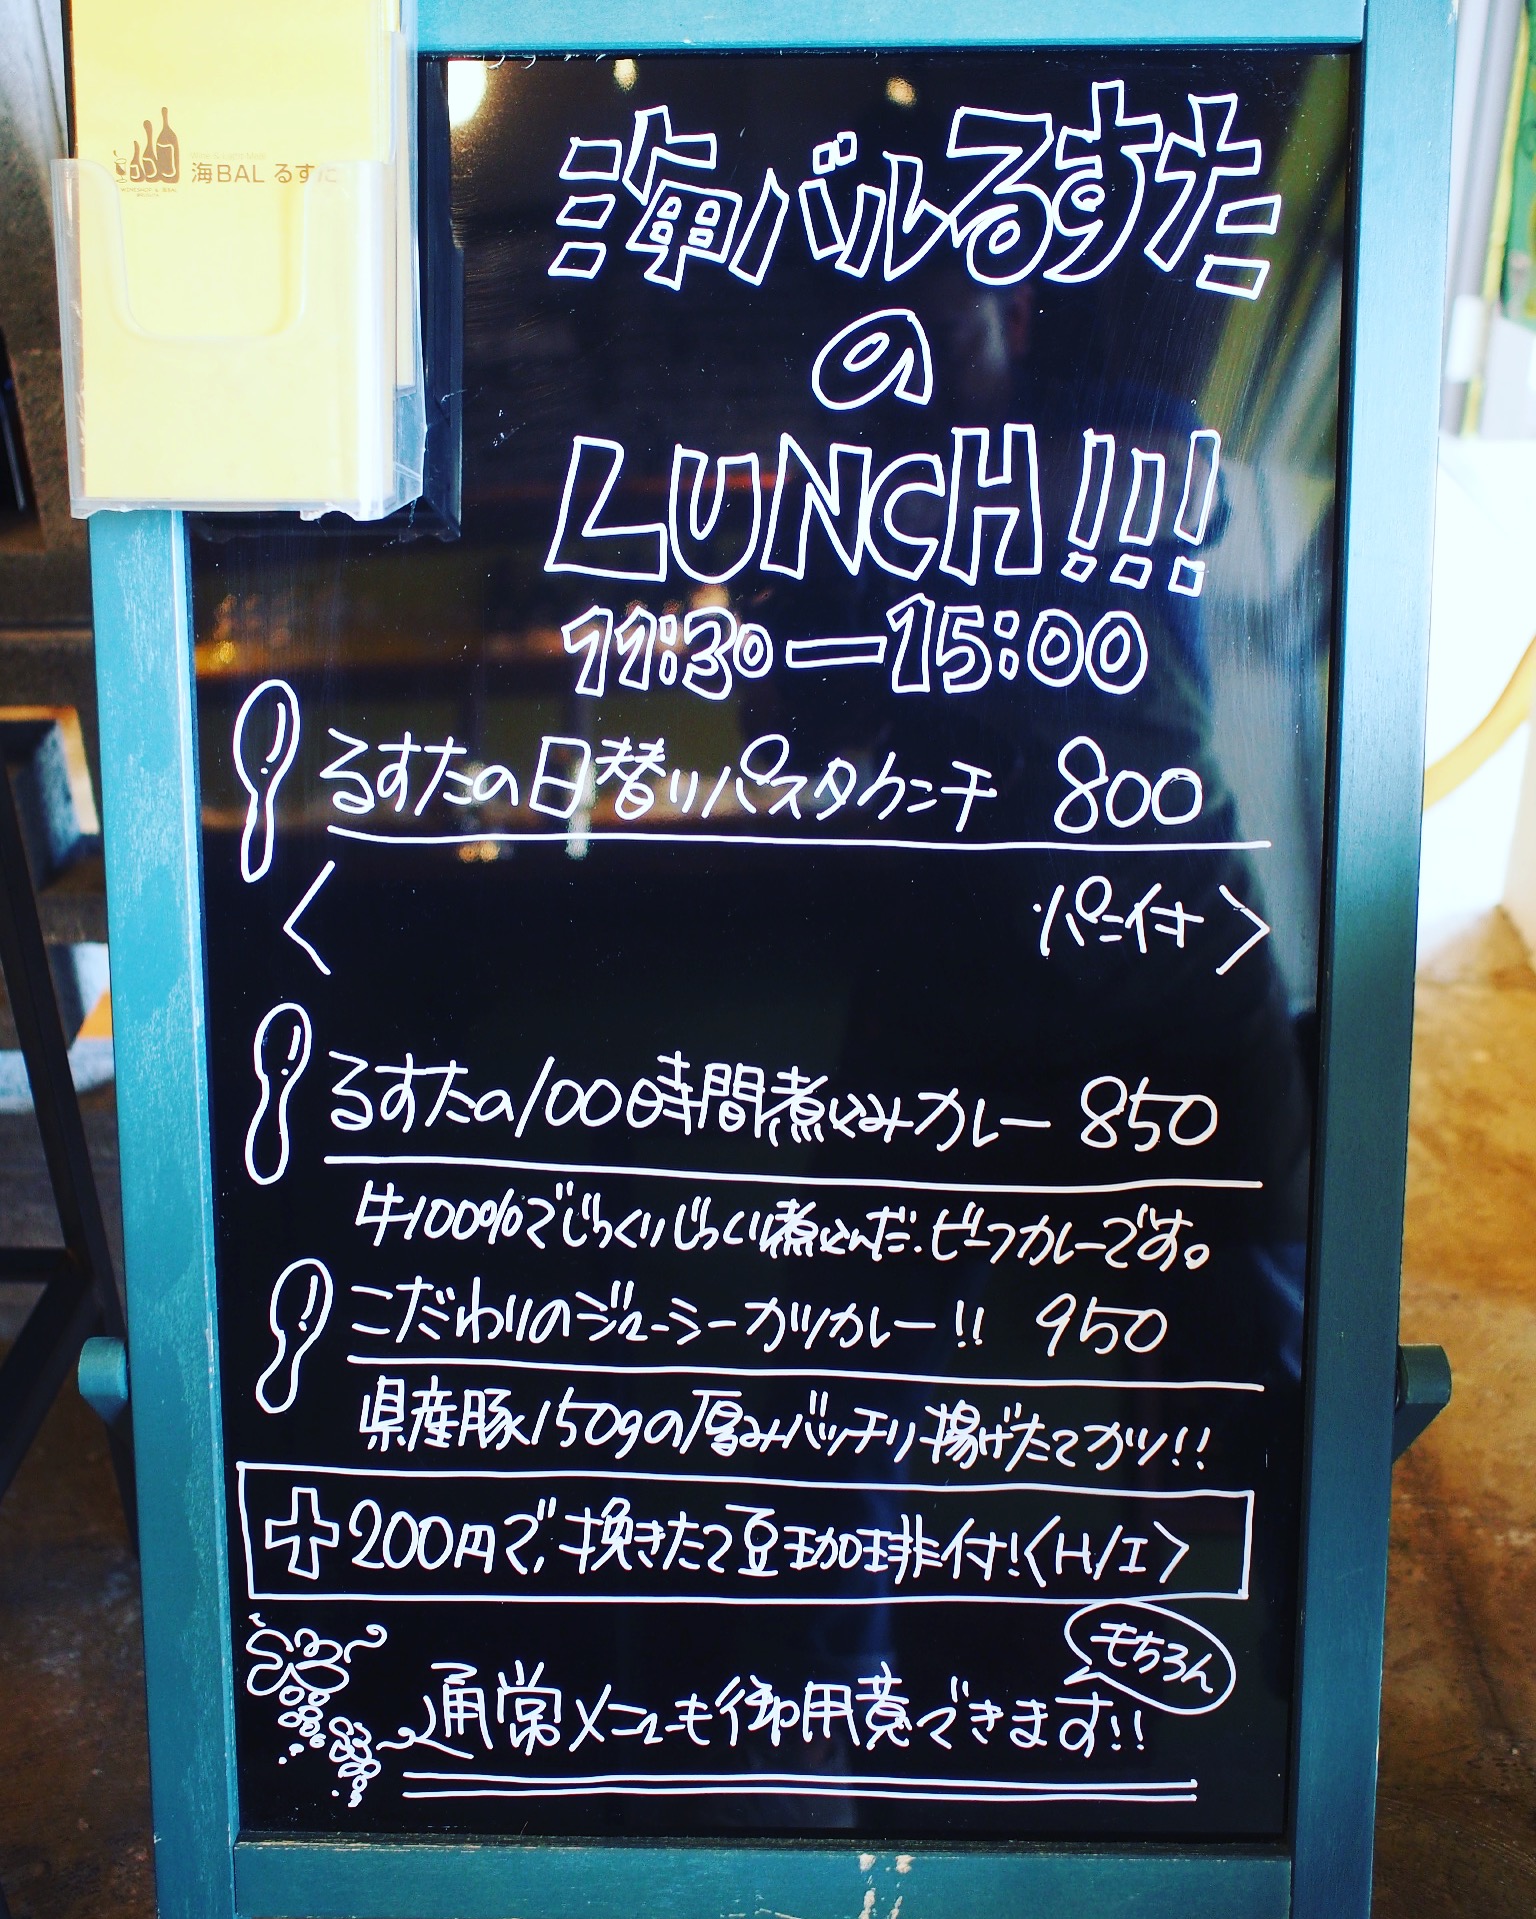 海BAL るすた
海バルるすた
の
LUNCH!!!
11:30—15:00
るすたの日替りパスタランチ 800
〈 パン付 〉
るすたの100時間煮込みカレー 850
牛100%でじっくりじっくり煮込んだ、ビーフカレーです。
こだわりのジューシーカツカレー!! 950
県産豚150gの厚みバッチリ揚げたてカツ!!
+200円で、挽きたて豆珈琲付!〈H/I〉
もちろん
通常メニューも御用意できます!!